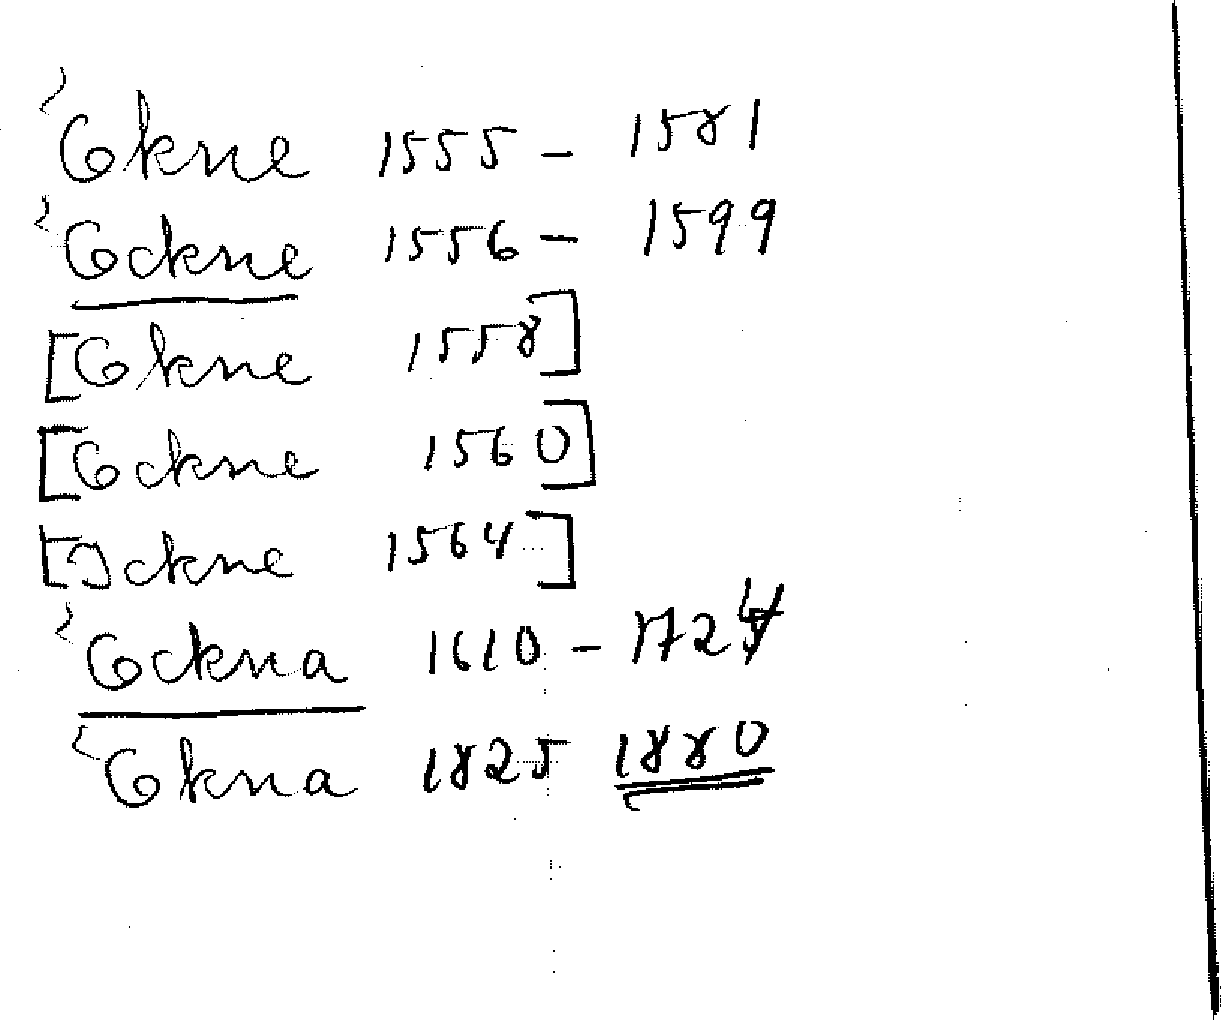 Okne 1555 – 1581
Ockne 1556 – 1599
[Okne 1558]
[Ockne 1560]
[Ockne 1564]
Ockna 1610 –
Okna 1825 1880